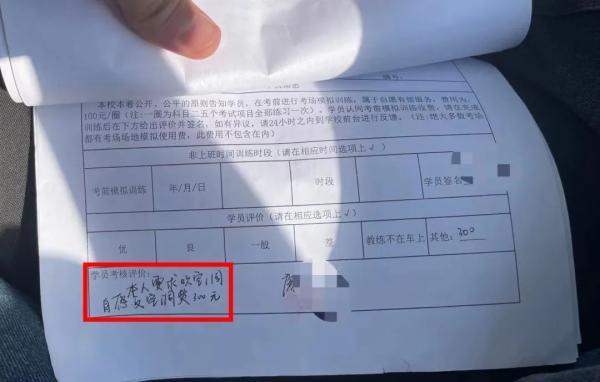 本校本着公开，公平的原则告知学员，在考前进行考场模拟训练，属于自愿有偿服务，费用为：
100元/圈（注：一圈为科目二五个考试项目全部练习一次）、学员认同考前模拟训练收费，请在完成
训练后在下方给出评价并签名，如有异议，请24小时之内到学校前台进行反馈。（注：绝大多数考场
都有考场场地模拟使用费，此费用不包含在内）
非上班时间训练时段（请在相应时间选项上√）
考前模拟训练 年/月/日 时段 学员签名
学员评价（请在相应选项上√）
优 良 一般 差 教练不在车上 其他：300
学员考核评价：
本人要求吹空调
自愿交空调费300元